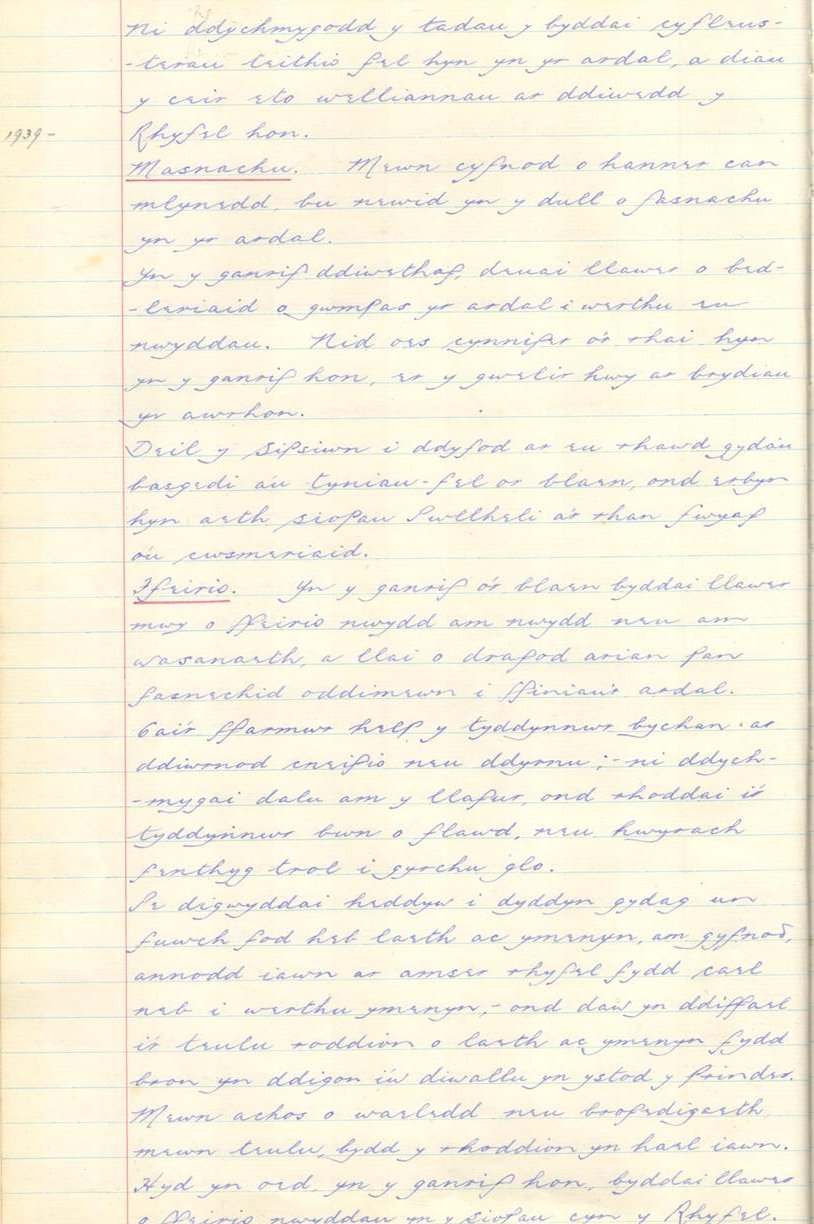 Ni ddychmygodd y tadau y byddai cyfleus-
-terau teithio fel hyn yn yr ardal, a diau
y ceir eto welliannau ar ddiwedd y
1939 -
Rhyfel hon.
Masnachu. Mewn cyfnod o hanner can
mlynedd, bu newid yn y dull o fasnachu
yn yr ardal.
Yn y ganrif ddiwethaf, deuai llawer o bed-
-leriaid o gwmpas yr ardal i werthu eu
nwyddau. Nid oes cynnifer o'r rhai hyn
yn y ganrif hon, er y gwelir hwy ar brydiau
yr awrhon.
Deil y Sifsiwn i ddyfod ar eu rhawd gyda'u
basgedi a'u tyniau - fel o'r blaen, ond erbyn
hyn aeth siopau Pwllheli a'r rhan fwyaf
o'u cwsmeriaid.
Ffeirio. Yn y ganrif o'r blaen byddai llawer
mwy o ffeirio nwydd am nwydd neu am
wasanaeth, a llai o drafod arian pan
fasnechid oddimewn i ffiniau'r ardal.
Cai'r ffarmwr help y tyddynnwr bychan ar
ddiwrnod cneifio neu ddyrnu; - ni ddych-
-mygai dalu am y llafur, ond rhoddai i'r
tyddynnwr bwn o flawd, neu hwyrach
fenthyg trol i gyrchu glo.
Pe digwyddai heddyw i dyddyn gydag un
fuwch fod heb laeth ac ymenyn, am gyfnod,
annodd iawn ar amser rhyfel fydd cael
neb i werthu ymenyn, - ond daw yn ddiffael
i'r teulu roddion o laeth ac ymenyn fydd
bron yn ddigon i'w diwallu yn ystod y prinder.
Mewn achos o waeledd neu brofedigaeth
mewn teulu, bydd y rhoddion yn hael iawn.
Hyd yn oed, yn y ganrif hon, byddai llawer
o ffeirio nwyddau yn y siopau cyn y Rhyfel.